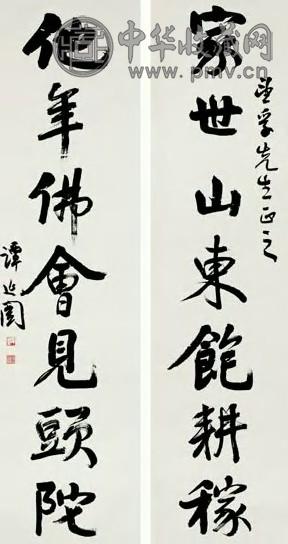 中华收藏网
www.pmv.cn
家世山東飽耕稼
孚先生正之
他年佛會見頭陀
譚延闓